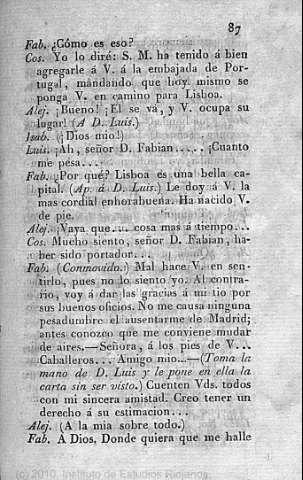 87
Fab. ¿Cómo es eso?
Cos. Yo lo diré: S. M. ha tenido á bien
agregarle á V. á la embajada de Por-
tugal, mandando que hoy mismo se
ponga V. en camino para Lisboa.
Alej. ¡Bueno! ¡El se vá, y V. ocupa su
lugar! (A D. Luis.)
Isab. (¡Dios mio!)
Luis. ¡Ah, señor D. Fabian..... ¡Cuanto
me pesa...
Fab. ¿Por qué? Lisboa es una bella ca-
pital. (Ap. á D. Luis.) Le doy á V. la
mas cordial enhorabuena. Ha nacido V.
de pie.
Alej. ¡Vaya que.... cosa mas á tiempo...
Cos. Mucho siento, señor D. Fabian, ha-
ber sido portador...
Fab. (Conmovido.) Mal hace V. en sen-
tirlo, pues no lo siento yo. Al contra-
rio, voy á dar las gracias á mi tio por
sus buenos oficios. No me causa ninguna
pesadumbre el ausentarme de Madrid;
antes conozco que me conviene mudar
de aires.—Señora, á los pies de V...
Caballeros... Amigo mio...—(Toma la
mano de D. Luis y le pone en ella la
carta sin ser visto.) Cuenten Vds. todos
con mi sincera amistad. Creo tener un
derecho á su estimacion...
Alej. (A la mia sobre todo.)
Fab. A Dios. Donde quiera que me halle
(c) 2010, Instituto de Estudios Riojanos